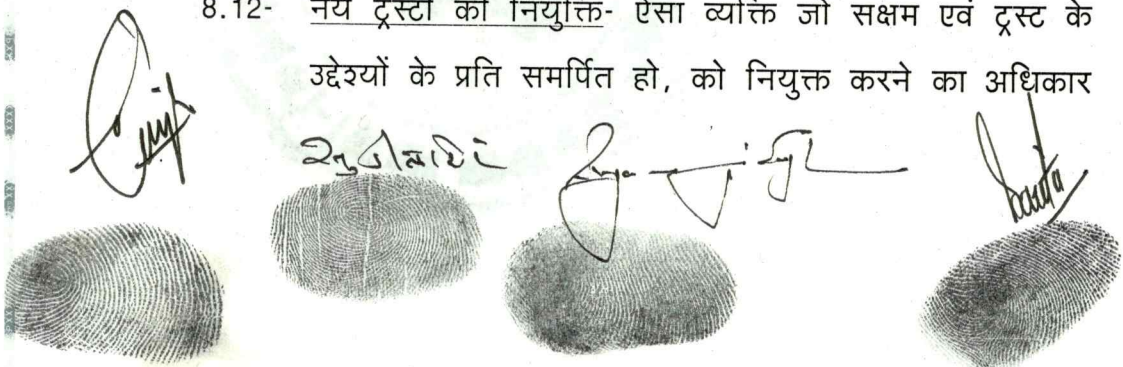 8.12- नये ट्रस्टी की नियुक्ति- ऐसा व्यक्ति जो सक्षम एवं ट्रस्ट के
उद्देश्यों के प्रति समर्पित हो, को नियुक्त करने का अधिकार